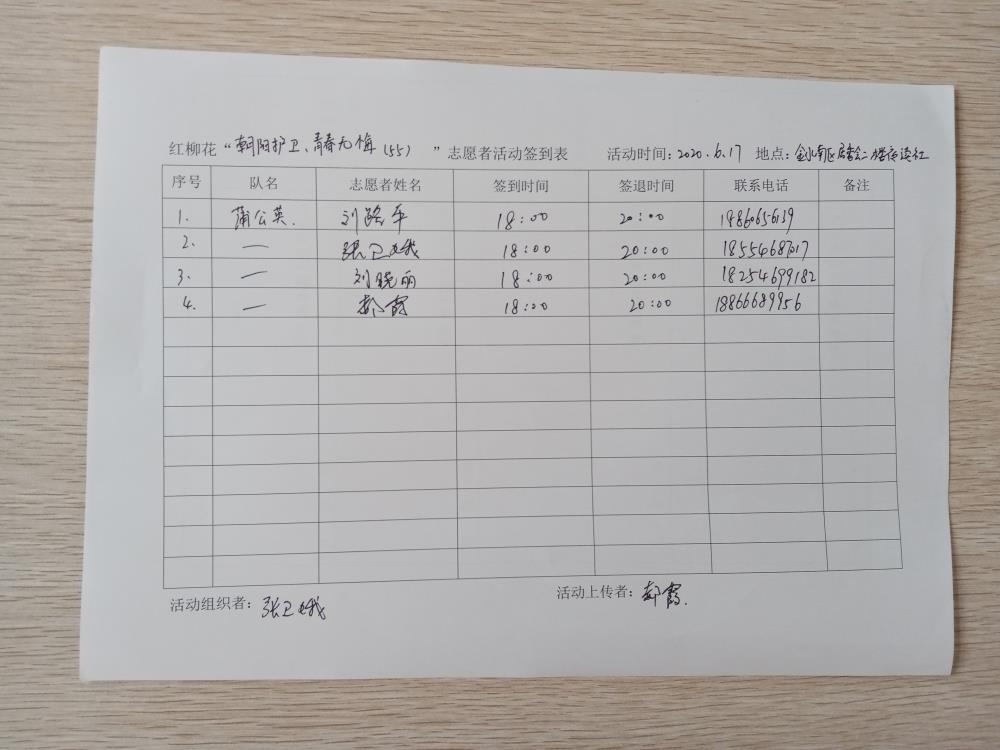 红柳花“朝阳护卫、青春无悔(55)”志愿者活动签到表 活动时间：2020.6.17 地点：
序号 队名 志愿者姓名 签到时间 签退时间 联系电话 备注
1. 蒲公英. 刘路平 18:00 20:00
2. — 张卫娥 18:00 20:00 18554687017
3. — 刘晓丽 18:00 20:00 18254699182
4. — 郝霞 18:00 20:00 18866689956
活动组织者：张卫娥
活动上传者：郝霞.